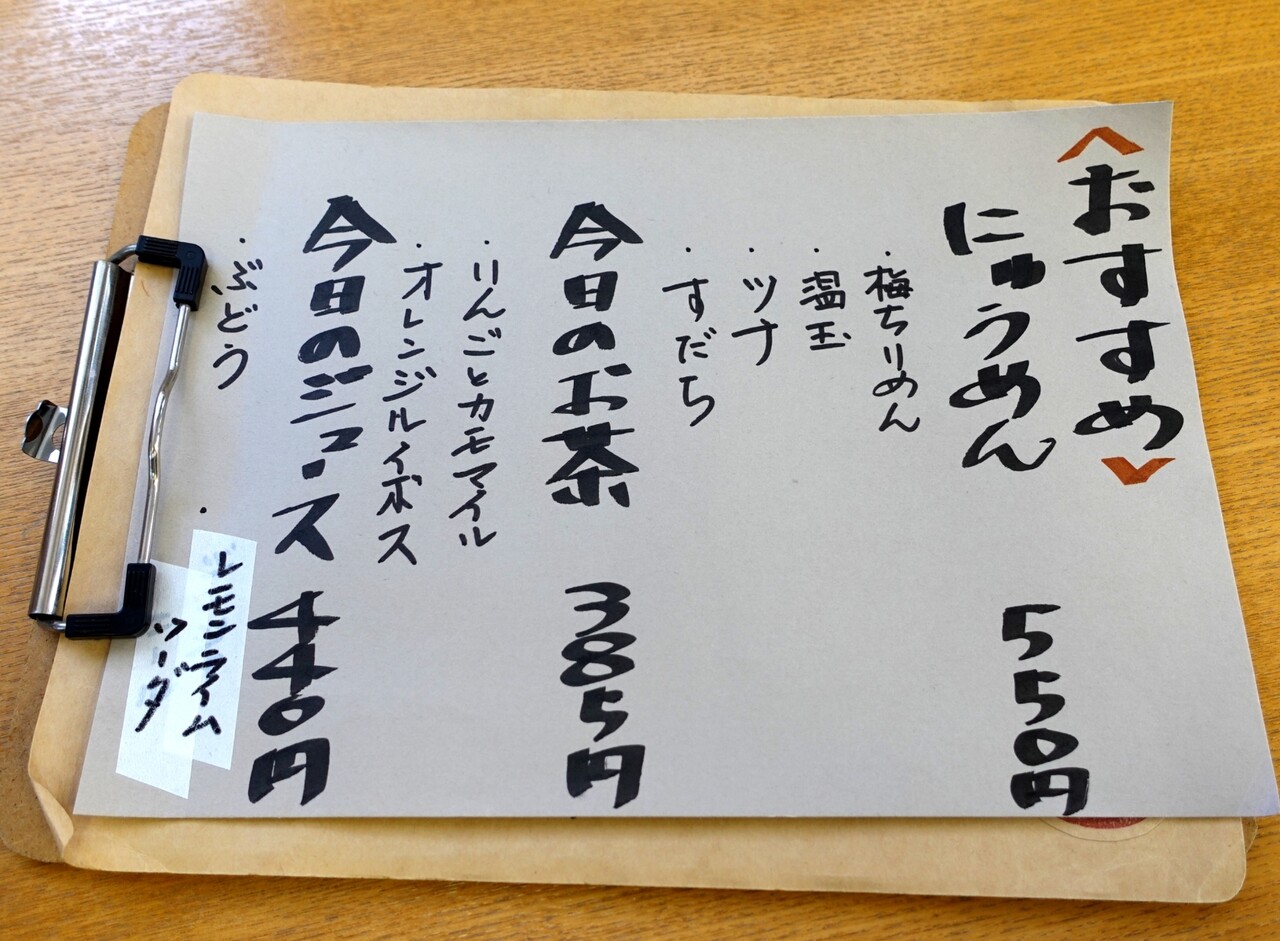 〈おすすめ〉
にゅうめん 550円
・梅ちりめん
・温玉
・ツナ
・すだち
今日のお茶 385円
・りんごとカモマイル
・オレンジルイボス
今日のジュース 440円
・ぶどう
・レモンライム
ソーダ